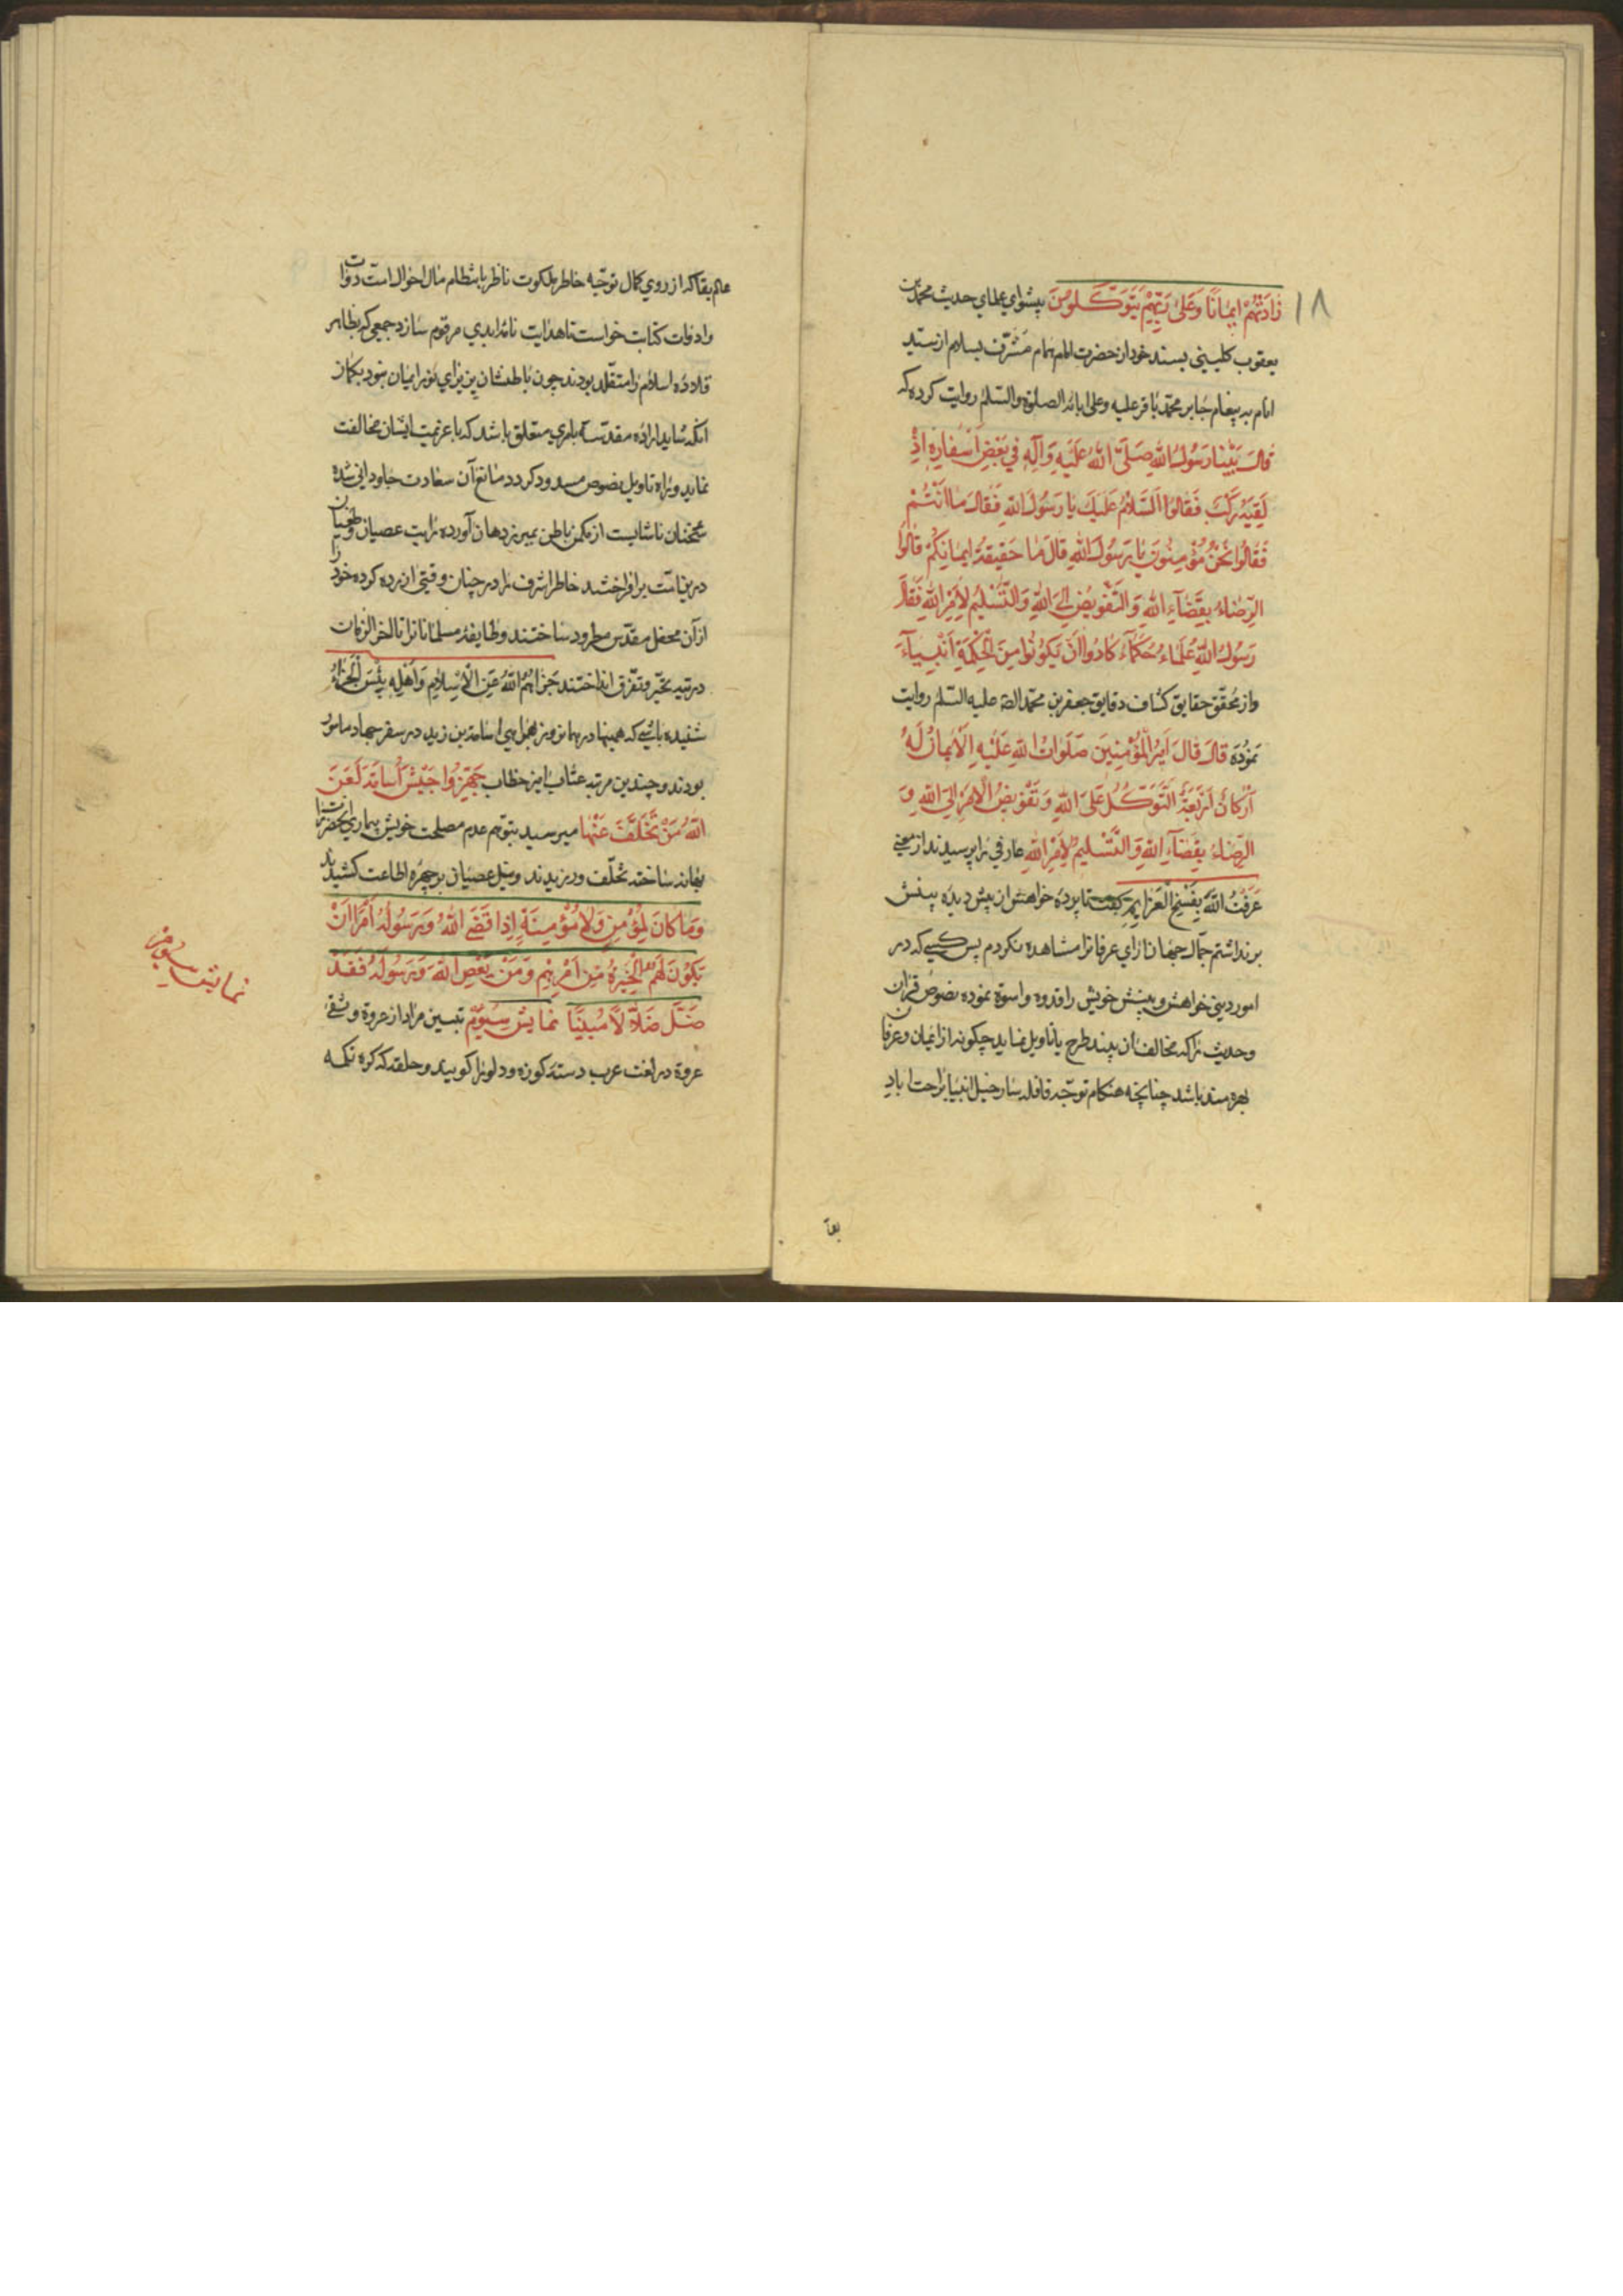 ۱۸
زَادَتْهُمْ اِیمَانًا وَعَلٰی رَبِّهِمْ یَتَوَکَّلُونَ پیشوای علمای حدیث محمد بن
یعقوب کلینی بسند خود از حضرت امام همام مشرف بسلام از سید
انام به پیغام جابر محمد باقر علیه وعلی ابائه الصلوة والسلم روایت کرده که
قالَ بَیْنا رَسُولُ اللهِ صَلَّی اللهُ عَلَیْهِ وَآلِهِ فی بَعْضِ اَسْفارِهِ اِذْ
لَقِیَهُ رَکْبٌ فَقالُوا اَلسَّلامُ عَلَیْكَ یا رَسُولَ اللهِ فَقالَ ما اَنْتُمْ
فَقالُوا نَحْنُ مُؤْمِنُونَ یا رَسُولَ اللهِ قالَ ما حَقیقَةُ ایمانِکُمْ قالُوا
الرِّضاءُ بِقَضآءِ اللهِ وَالتَّفْویضُ اِلَی اللهِ وَالتَّسْلیمُ لِاَمْرِ اللهِ فَقالَ
رَسُولُ اللهِ عُلَماءُ حُکَمآءُ کادُوا اَنْ یَکُونُوا مِنَ الْحِکْمَةِ اَنْبِیآءَ
واز محقق حقایق کشاف دقایق جعفر بن محمد الصه علیه السلم روایت
نموده قالَ قالَ اَمیرُ الْمُؤْمِنینَ صَلَواتُ اللهِ عَلَیْهِ اَلْایمانُ لَهُ
اَرْکانٌ اَرْبَعَةٌ اَلتَّوَکُّلُ عَلَی اللهِ وَ تَفْویضُ الْاَمْرِ اِلَی اللهِ وَ
الرِّضاءُ بِقَضآءِ اللهِ وَ التَّسْلیمُ لِاَمْرِ اللهِ عارفی را پرسیدند از معنی
عَرَفْتُ اللهَ بِفَسْخِ الْعَزایِمِ گفت تا پردۀ خواهش از پیش دیده بینش
برنداشتم جمال جهان ارای عرفانرا مشاهده نکردم پس کسی که در
امور دینی خواهش و بینش خویش را قدوه واسوة نموده نصوص قران
وحدیث را که مخالف ان بیند طرح یا تاویل نماید چگونه از ایمان وعرفان
بهره مند باشد چنانچه هنگام توجه قافله سار خیل انبیا براحت اباد
عالم بقا که از روی کمال توجه خاطر ملکوت ناظر بانتظام مال احوال امت دوات
وادوات کتابت خواست تا هدایت نامه ابدی مرقوم سازد جمعی که بظاهر
قلاده اسلام را متقلد بودند چون باطنشان پذیرای نور ایمان نبود بگمان
انکه شاید اراده مقدسه بامری متعلق باشد که با عزیمت ایشان مخالفت
نماید و راه تاویل نصوص مسدود کردد مانع آن سعادت جاودانی شده
سخنان ناشایست از مکمن باطن بمیر زدهان آورده رایت عصیان وطغیان
درین امت برافراختند خاطر اشرف را در چنان وقتی ازرده کرده خود را
ازان محفل مقدس مطرود ساختند وطایفه مسلمانانرا تا اخر الزمان
درتیه تحیر وتفرق انداختند جَزاهُمُ اللهُ عَنِ الْاِسْلامِ وَاَهْلِهِ بِئْسَ الْجَزاءُ
شنیده باشی که همینها در همانروز بهمراهی اسامة بن زید در سفر جهاد مامور
بودند و چندین مرتبه عتاب امیز خطاب جَهِّزُوا جَیْشَ اُسامَةَ لَعَنَ
اللهُ مَنْ تَخَلَّفَ عَنْها میرسید بتوهم عدم مصلحت خویش بیماری انحضرترا
بهانه ساخته تخلف ورزیدند ونیل عصیان برچهره اطاعت کشیدند
وَمَا کَانَ لِمُؤْمِنٍ وَلَا مُؤْمِنَةٍ اِذَا قَضَی اللهُ وَرَسُولُهُ اَمْرًا اَنْ
یَکُونَ لَهُمُ الْخِیَرَةُ مِنْ اَمْرِهِمْ وَمَنْ یَعْصِ اللهَ وَرَسُولَهُ فَقَدْ
ضَلَّ ضَلَالًا مُبِینًا نمایش سیوم تبیین مراد از عروة وثقی
عروة در لغت عرب دسته کوزه ودلو را کویند وحلقه که کره تکمه
نمایش سیوم